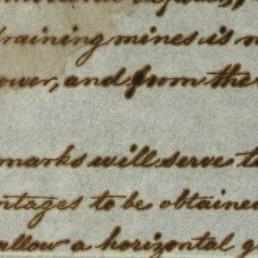 training mines is
ower, and from the
marks will serve
ntages to be obtained
allow a horizontal